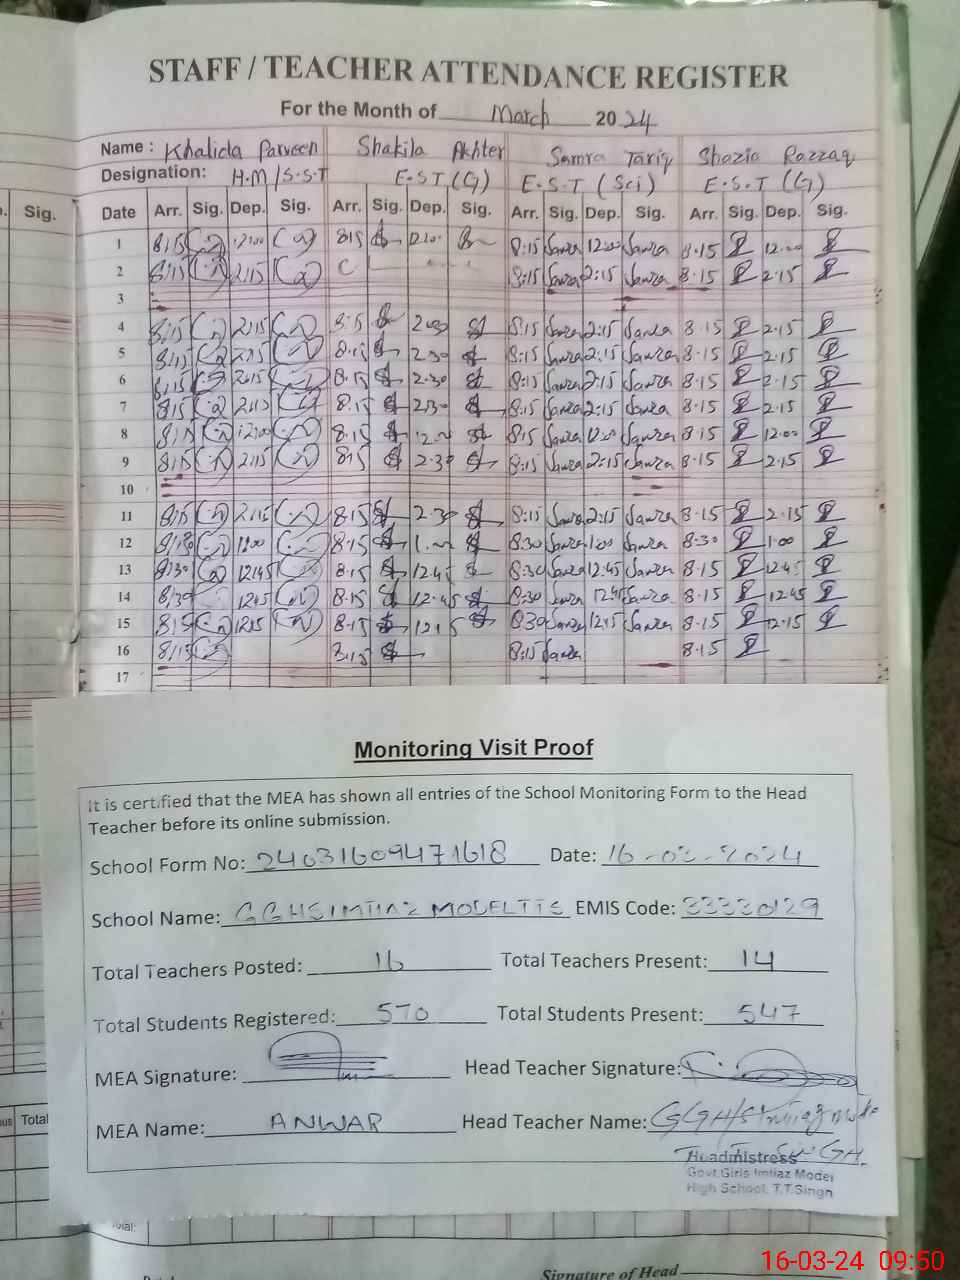 STAFF / TEACHER ATTENDANCE REGISTER
For the Month of March 2024
Name : Khalida Parveen Shakila Akhter Samra Tariq Shazia Razzaq
Designation: H.M/S.S.T E.S.T (G) E.S.T (Sci) E.S.T (G)
Sig. Date Arr. Sig. Dep. Sig. Arr. Sig. Dep. Sig. Arr. Sig. Dep. Sig. Arr. Sig. Dep. Sig.
1 8:15 12:00 8:15 12:00 8:15 Samra 12:00 Samra 8.15 12.00
2 8:15 2:15 C 8:15 Samra 2:15 Samra 8.15 2.15
3
4 8:15 2:15 8:15 2:30 8:15 Samra 2:15 Samra 8.15 2.15
5 8:15 2:15 8.15 2.30 8:15 Samra 2:15 Samra 8.15 2.15
6 8:15 2:15 8.15 2.30 8:15 Samra 2:15 Samra 8.15 2.15
7 8:15 2:15 8.15 2:30 8:15 Samra 2:15 Samra 8.15 2.15
8 8:15 12:00 8.15 8:15 Samra 12:00 Samra 8.15 12.00
9 8:15 2:15 8:15 2.30 8:15 Samra 2:15 Samra 8.15 2.15
10
11 8:15 2:15 8:15 2.30 8:15 Samra 2:15 Samra 8.15 2.15
12 8:30 1:00 8.15 1.00 8:30 Samra 1:00 Samra 8.30 1.00
13 8:30 12:45 8.15 12.45 8:30 Samra 12:45 Samra 8.15 12.45
14 8:30 12:45 8.15 12.45 8:30 Samra 12:45 Samra 8.15 12.45
15 8:15 12:15 8.15 12:15 8:30 Samra 12:15 Samra 8.15 12.15
16 8:15 8:15 8:15 Samra 8.15
17
Monitoring Visit Proof
It is certified that the MEA has shown all entries of the School Monitoring Form to the Head
Teacher before its online submission.
School Form No: 24031609471618 Date: 16-03-2024
School Name: GGHS IMTIAZ MODEL TTS EMIS Code: 33330129
Total Teachers Posted: 16 Total Teachers Present: 14
Total Students Registered: 570 Total Students Present: 547
MEA Signature: Head Teacher Signature:
MEA Name: ANWAR Head Teacher Name: GGH/S Imtiaz Model
Headmistress
Govt Girls Imtiaz Model
High School, T.T.Singh
Total
Total:
Signature of Head
16-03-24 09:50